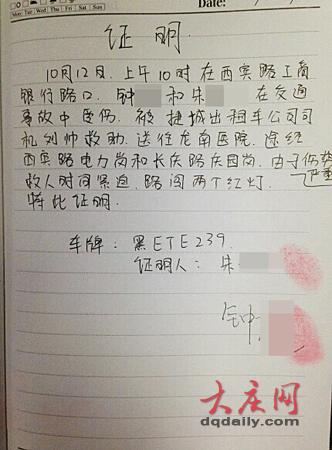 Date:
Mon. Tue. Wed. Thu. Fri. Sat. Sun.
证明
10月12日.上午10时在西宾路工商
银行路口.钟 和朱 在交通
事故中受伤.被捷城出租车公司司
机刘帅救助.送往龙南医院.途经
西宾路电力岗和长庆路庆园岗.由于伤势
严重
救人时间紧迫.路闯两个红灯.
特此证明.
车牌:黑ETE239.
证明人:朱
钟
大庆网
dqdaily.com